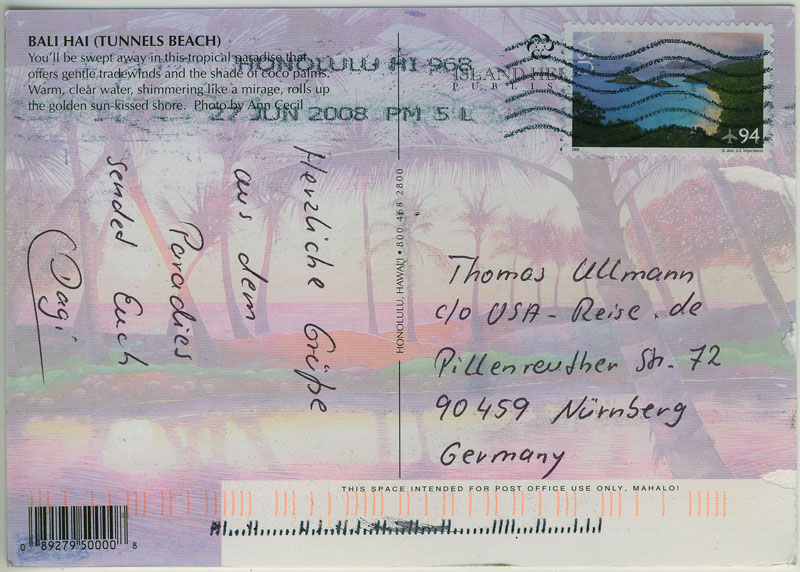 BALI HAI (TUNNELS BEACH)
You'll be swept away in this tropical paradise that
offers gentle tradewinds and the shade of coco palms.
Warm, clear water, shimmering like a mirage, rolls up
the golden sun-kissed shore. Photo by Ann Cecil
HONOLULU HI 968
27 JUN 2008 PM 5 L
ISLAND
USA
94
Herzliche Grüße
aus dem
Paradies
sendet Euch
Dagi
HONOLULU, HAWAI'I • 800 468 2800
Thomas Ullmann
c/o USA-Reise.de
Pillenreuther Str. 72
90459 Nürnberg
Germany
THIS SPACE INTENDED FOR POST OFFICE USE ONLY, MAHALO!
0 89279 50000 8